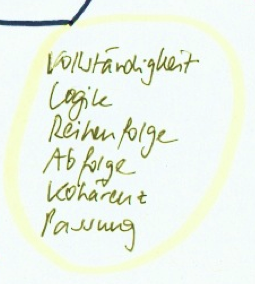 Vollständigkeit
Logik
Reihenfolge
Abfolge
Kohärenz
Passung